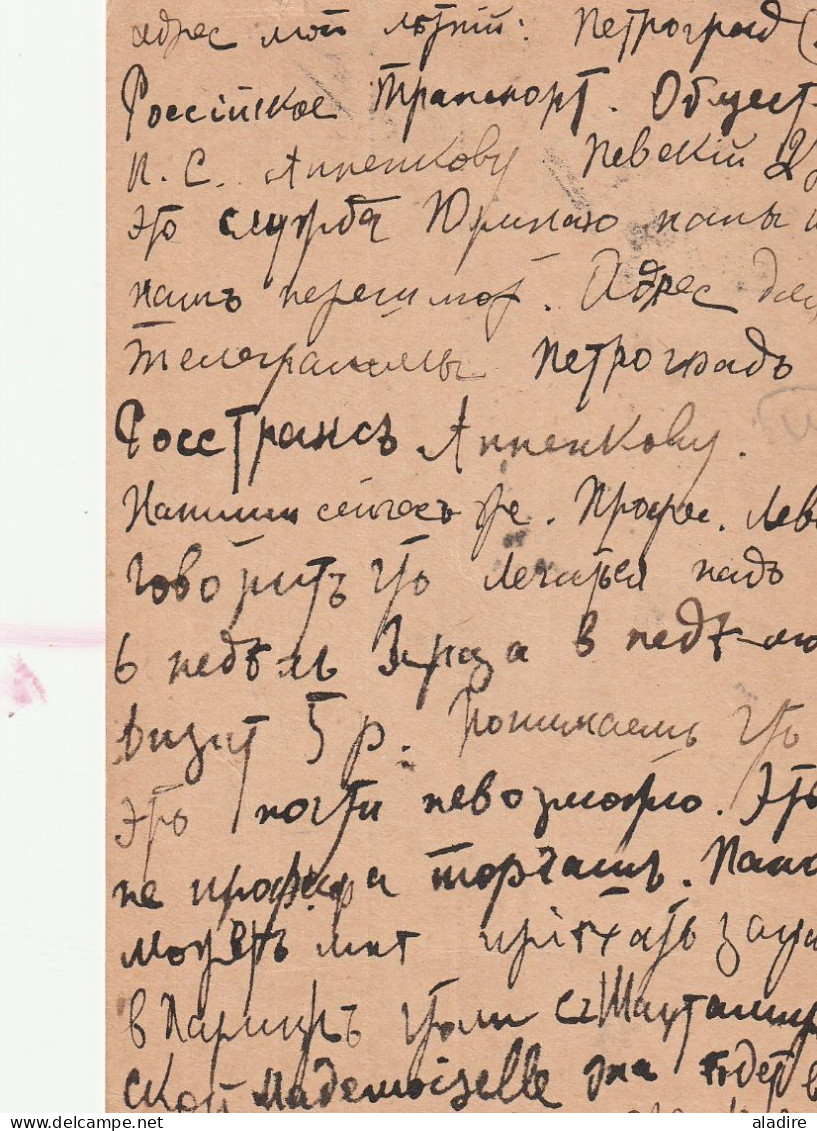 адрес мой лѣтній: Петроград
Россійское Транспорт. Общест
П. С. Анненкову Невскій
это служба Юриного папы и
нашъ перешлют. Адрес для
Телеграммы Петроградъ
РосТрансъ Анненкову.
Напиши сейчасъ же. Профес. Лев
говоритъ что лечиться надъ
6 недѣль 3 раза в недѣлю
визит 5 р. Понимаемъ что
это почти невозможно. Это
не профес. а торгашъ. Папа
можетъ мнѣ пріѣхать за
в Парижъ с
ской Mademoiselle она ѣдет в
aladire